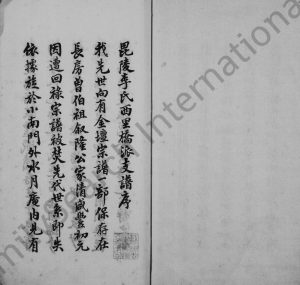 毘陵李氏西里橋派支譜序
我先世向有金壇宗譜一部保存在
長房曾伯祖叙隆公家清咸豐初元
因遭回祿宗譜被焚先代世系即失
依據旋於小南門外水月庵内見有